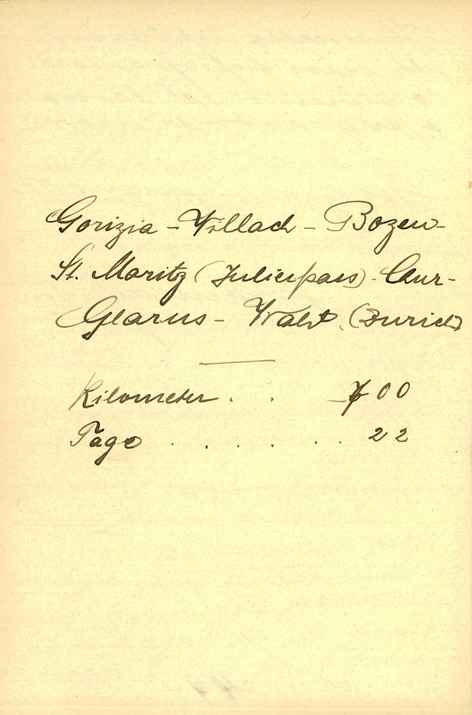 Gorizia - Villach - Bozen -
St. Moritz (Julierpass) - Chur -
Glarus - Wald (Zürich)
Kilometer . . 700
Tage . . . . . . 22